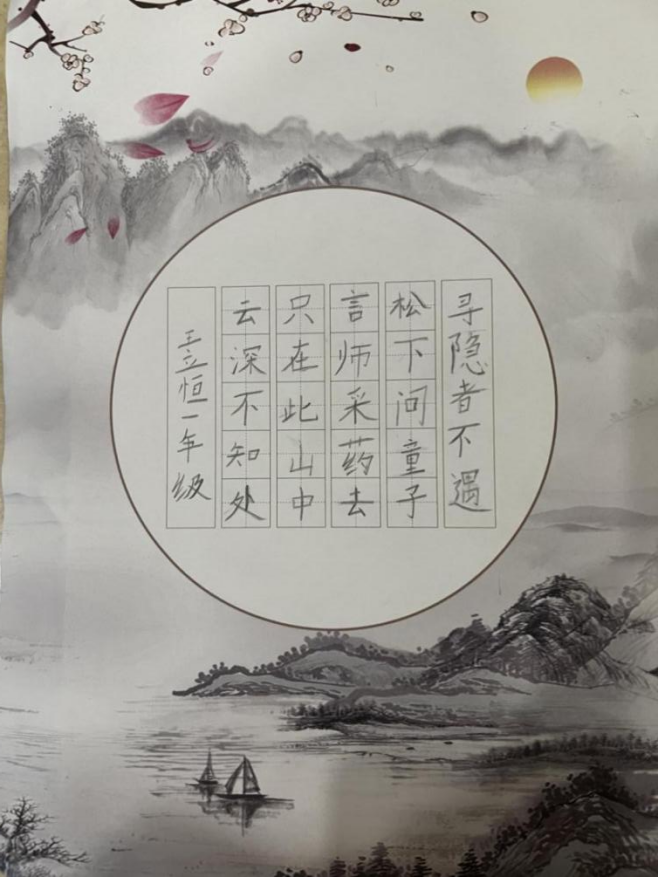 寻隐者不遇
松下问童子
言师采药去
只在此山中
云深不知处
王立恒一年级